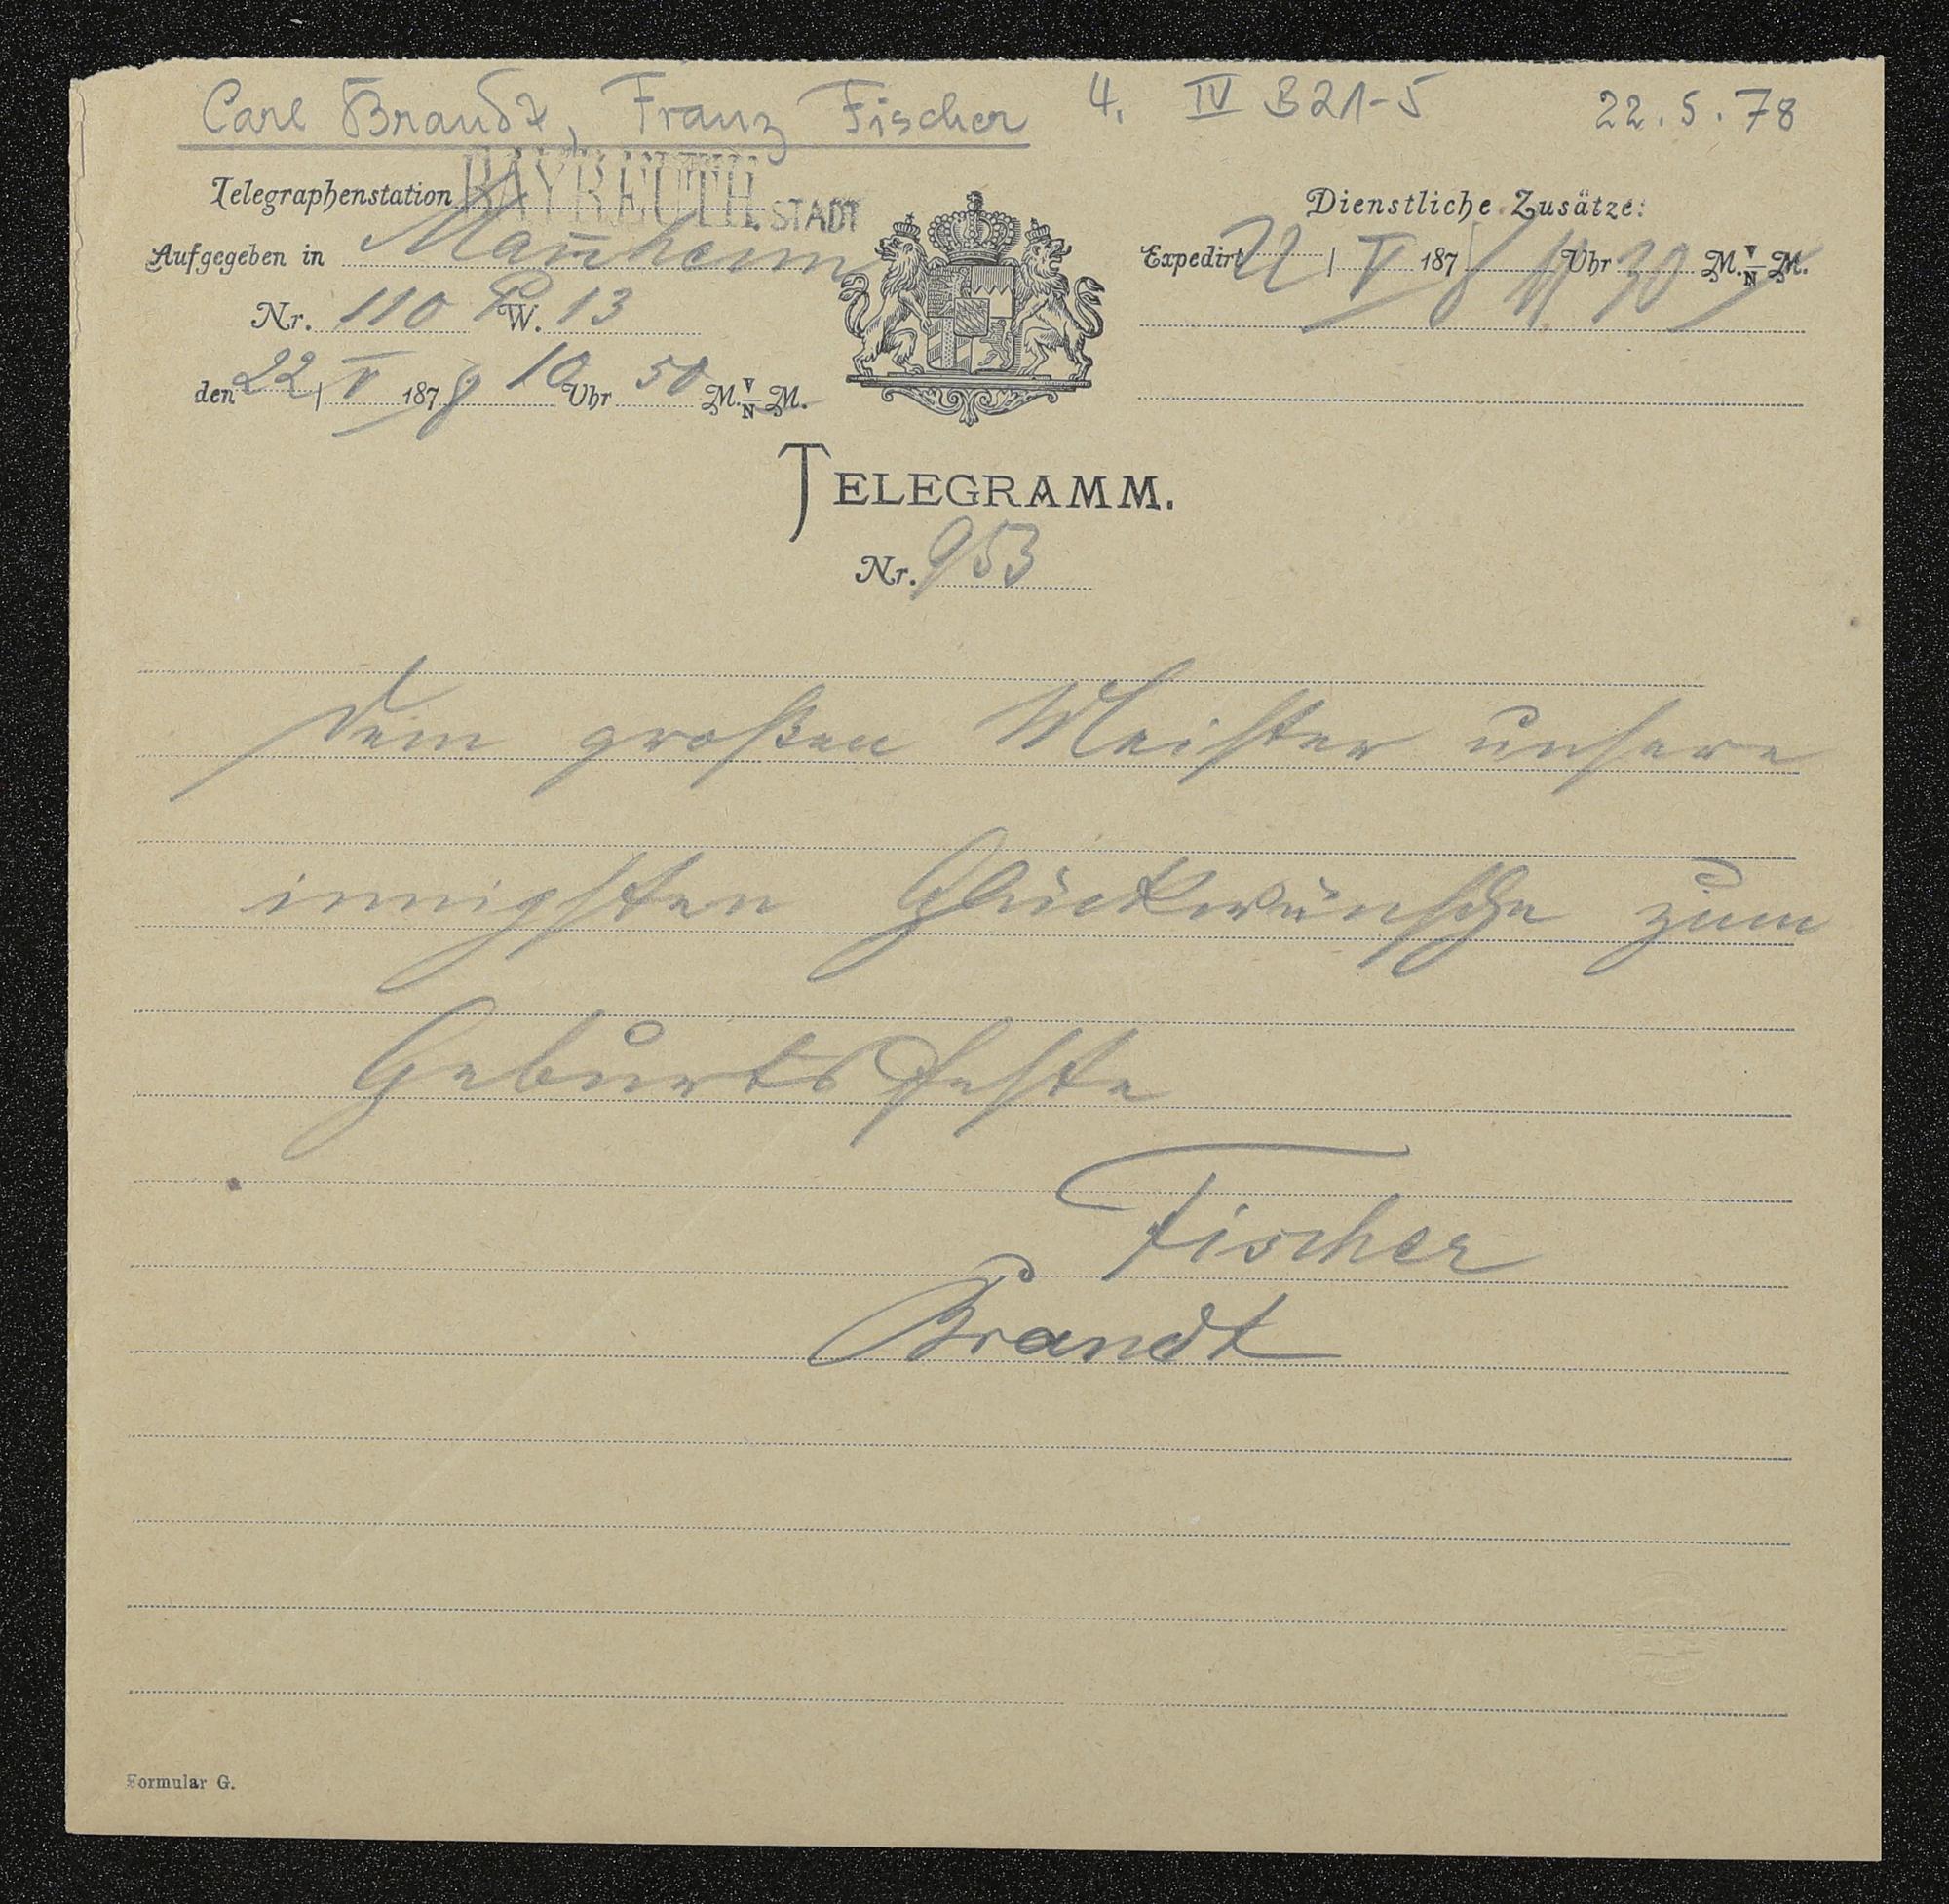 Carl Brandt, Franz Fischer 4. IV B21-5 22.5.78
Telegraphenstation BAYREUTH. STADT
Aufgegeben in Mannheim
Nr. 110 W. 13
den 22 / V 1878 10 Uhr 50 M. V/N M.
Dienstliche Zusätze:
Expedirt 22 / V 1878 11 Uhr 30 M. V/N M.
TELEGRAMM.
Nr. 953
Dem großen Meister unsere
innigsten Glückwünsche zum
Geburtsfeste
Fischer
Brandt
Formular G.